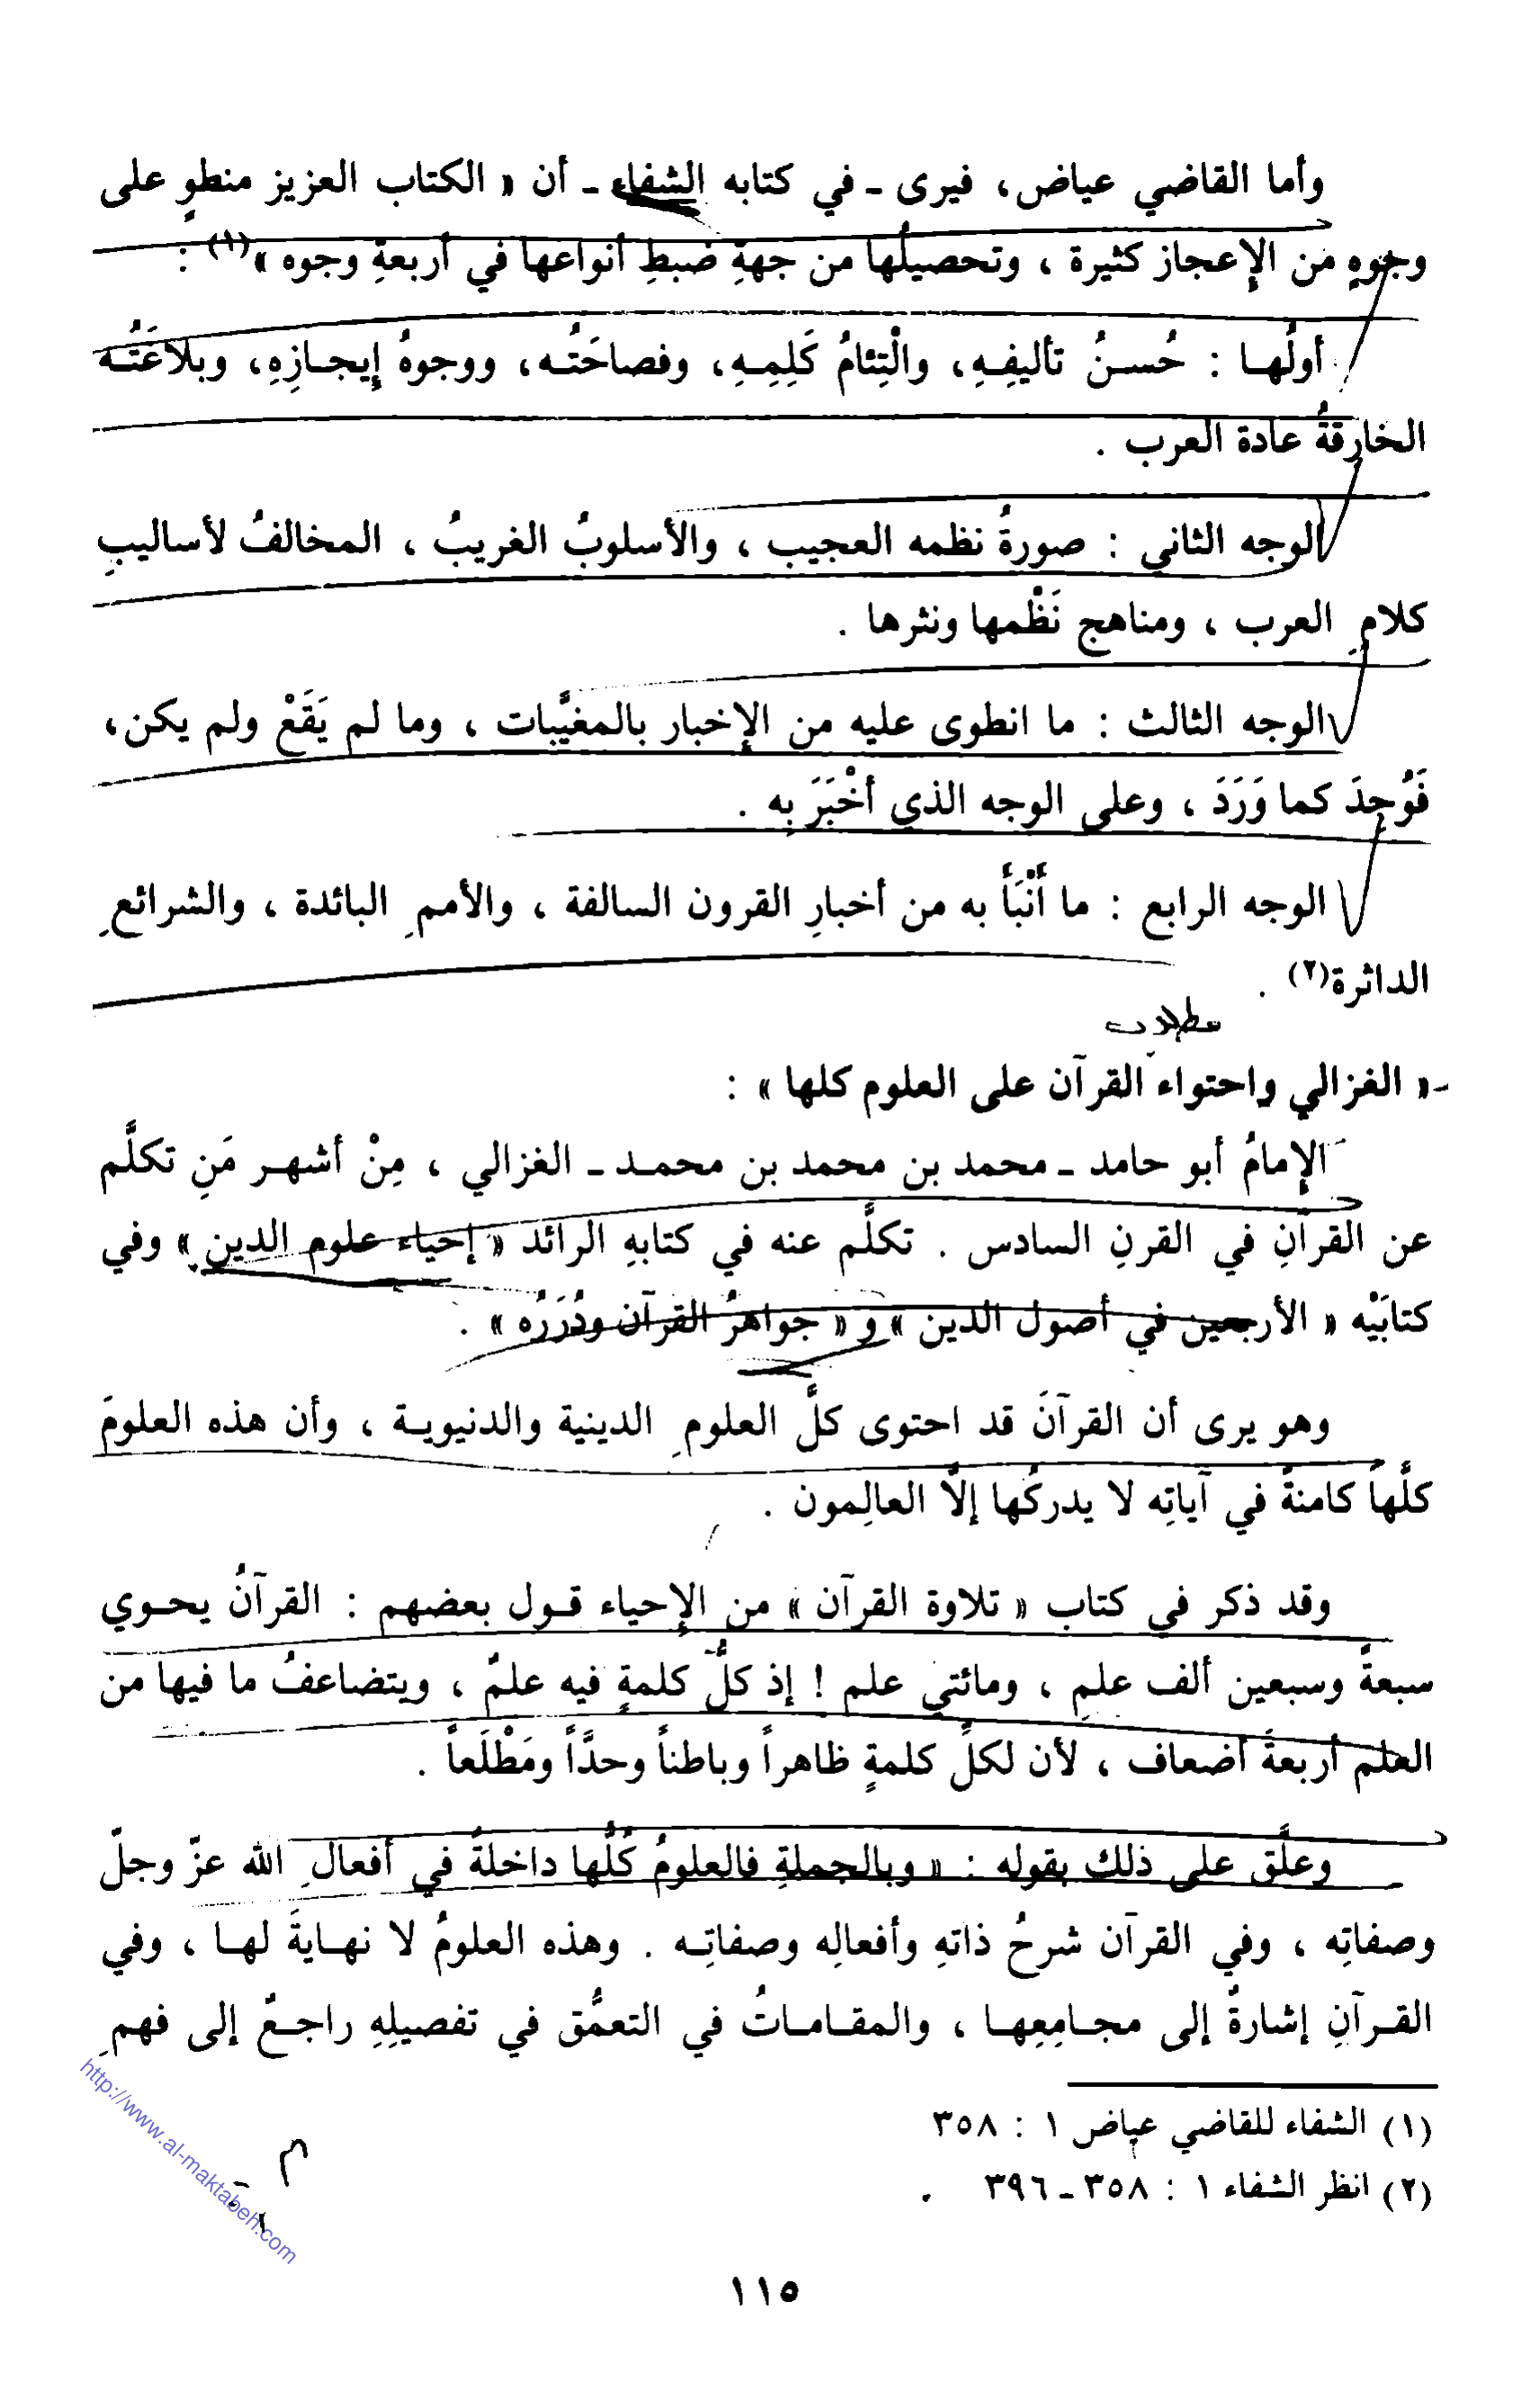 وأما القاضي عياض، فيرى ـ في كتابه الشفاء ـ أن « الكتاب العزيز منطوٍ على
وجوهٍ من الإعجاز كثيرة ، وتحصيلُها من جهةِ ضبطِ أنواعها في أربعةِ وجوه »(١) :
أولُهـا : حُسـنُ تأليفِـهِ، والْتِئامُ كَلِمِـهِ، وفصاحَتُـه، ووجوهُ إيجـازِهِ، وبلاغَتُـه
الخارقةُ عادة العرب .
الوجه الثاني : صورةُ نظمه العجيب ، والأسلوبُ الغريبُ ، المخالفُ لأساليبِ
كلامِ العرب ، ومناهج نَظْمها ونثرها .
الوجه الثالث : ما انطوى عليه من الإخبار بالمغيَّبات ، وما لم يَقَعْ ولم يكن،
فَوُجِدَ كما وَرَدَ ، وعلى الوجه الذي أخْبَرَ بِه .
الوجه الرابع : ما أَنْبَأَ به من أخبارِ القرون السالفة ، والأممِ البائدة ، والشرائعِ
الداثرة(٢) .
ـ « الغزالي واحتواء القرآن على العلوم كلها » :
الإمامُ أبو حامد ـ محمد بن محمد بن محمـد ـ الغزالي ، مِنْ أشهـر مَنِ تكلَّم
عن القرآنِ في القرنِ السادس . تكلَّم عنه في كتابهِ الرائد « إحياء علوم الدين » وفي
كتابَيْه « الأربعين في أصول الدين » و « جواهرُ القرآن ودُرَرُه » .
وهو يرى أن القرآنَ قد احتوى كلَّ العلومِ الدينية والدنيويـة ، وأن هذه العلومَ
كلَّها كامنةٌ في آياتِه لا يدركُها إلَّا العالِمون .
وقد ذكر في كتاب « تلاوة القرآن » من الإحياء قـول بعضهم : القرآنُ يحـوي
سبعةً وسبعين ألف علمٍ ، ومائتي علم ! إذ كلُّ كلمةٍ فيه علمٌ ، ويتضاعفُ ما فيها من
العلم أربعةَ أضعاف ، لأن لكلِّ كلمةٍ ظاهراً وباطناً وحدَّاً ومَطْلَعاً .
وعلَّق على ذلك بقوله : « وبالجملةِ فالعلومُ كُلُّها داخلةٌ في أفعالِ الله عزّ وجلّ
وصفاتِه ، وفي القرآن شرحُ ذاتهِ وأفعالِه وصفاتِـه . وهذه العلومُ لا نهـايةَ لهـا ، وفي
القـرآنِ إشارةٌ إلى مجـامِعِهـا ، والمقـامـاتُ في التعمُّق في تفصيلِهِ راجـعٌ إلى فهمِ
(١) الشفاء للقاضي عياض ١ : ٣٥٨
(٢) انظر الشفاء ١ : ٣٥٨ ـ ٣٩٦ .
http://www.al-maktabeh.com
١١٥